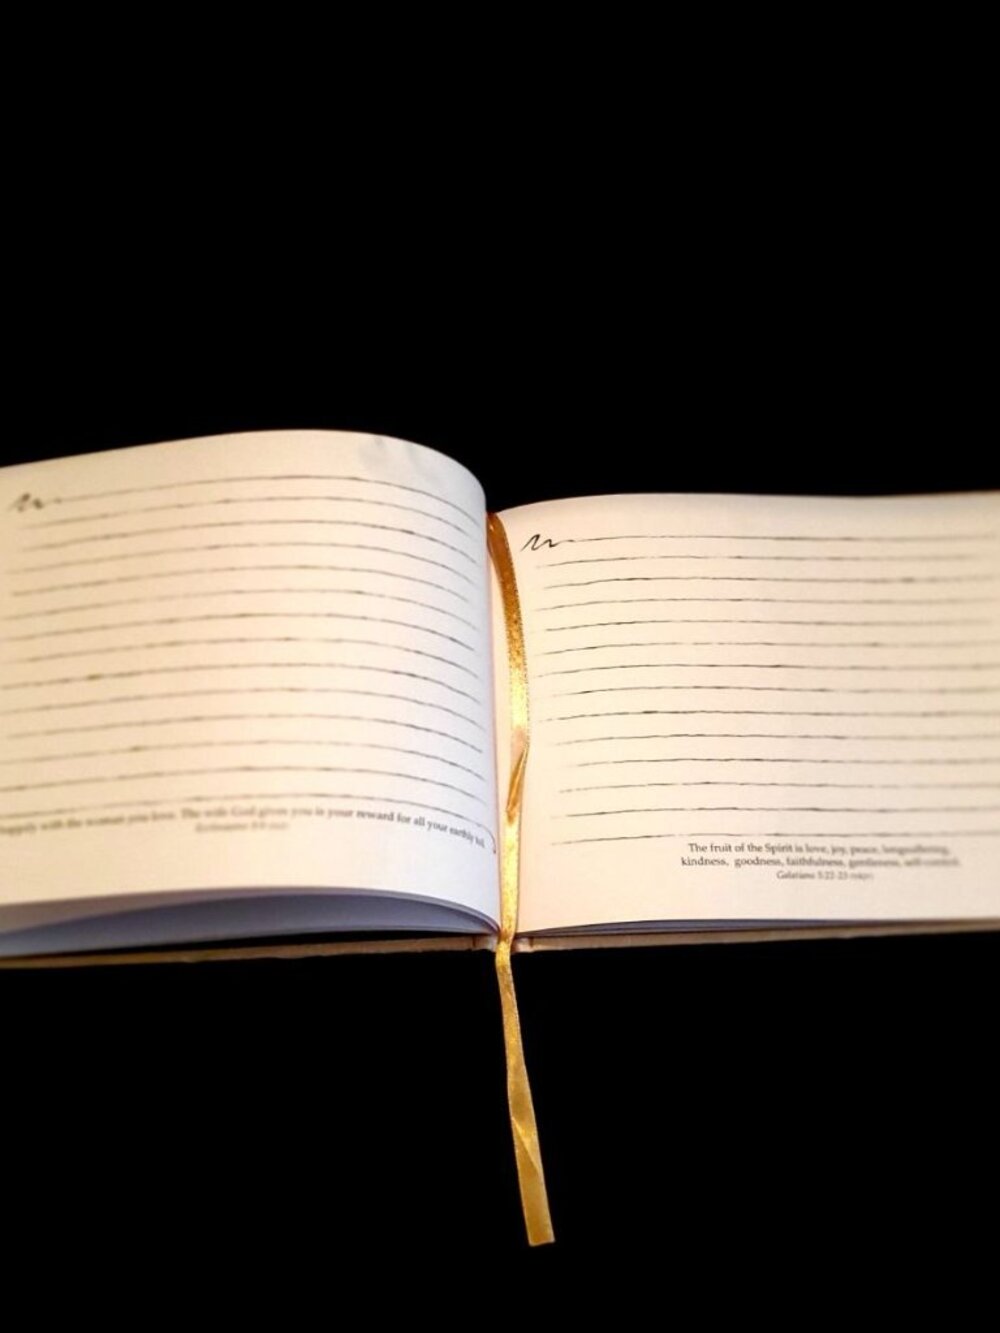 happily with the woman you love. The wife God gives you is your reward for all your earthly toil.
Ecclesiastes 9:9
The fruit of the Spirit is love, joy, peace, longsuffering,
kindness, goodness, faithfulness, gentleness, self-control.
Galatians 5:22-23 (NKJV)